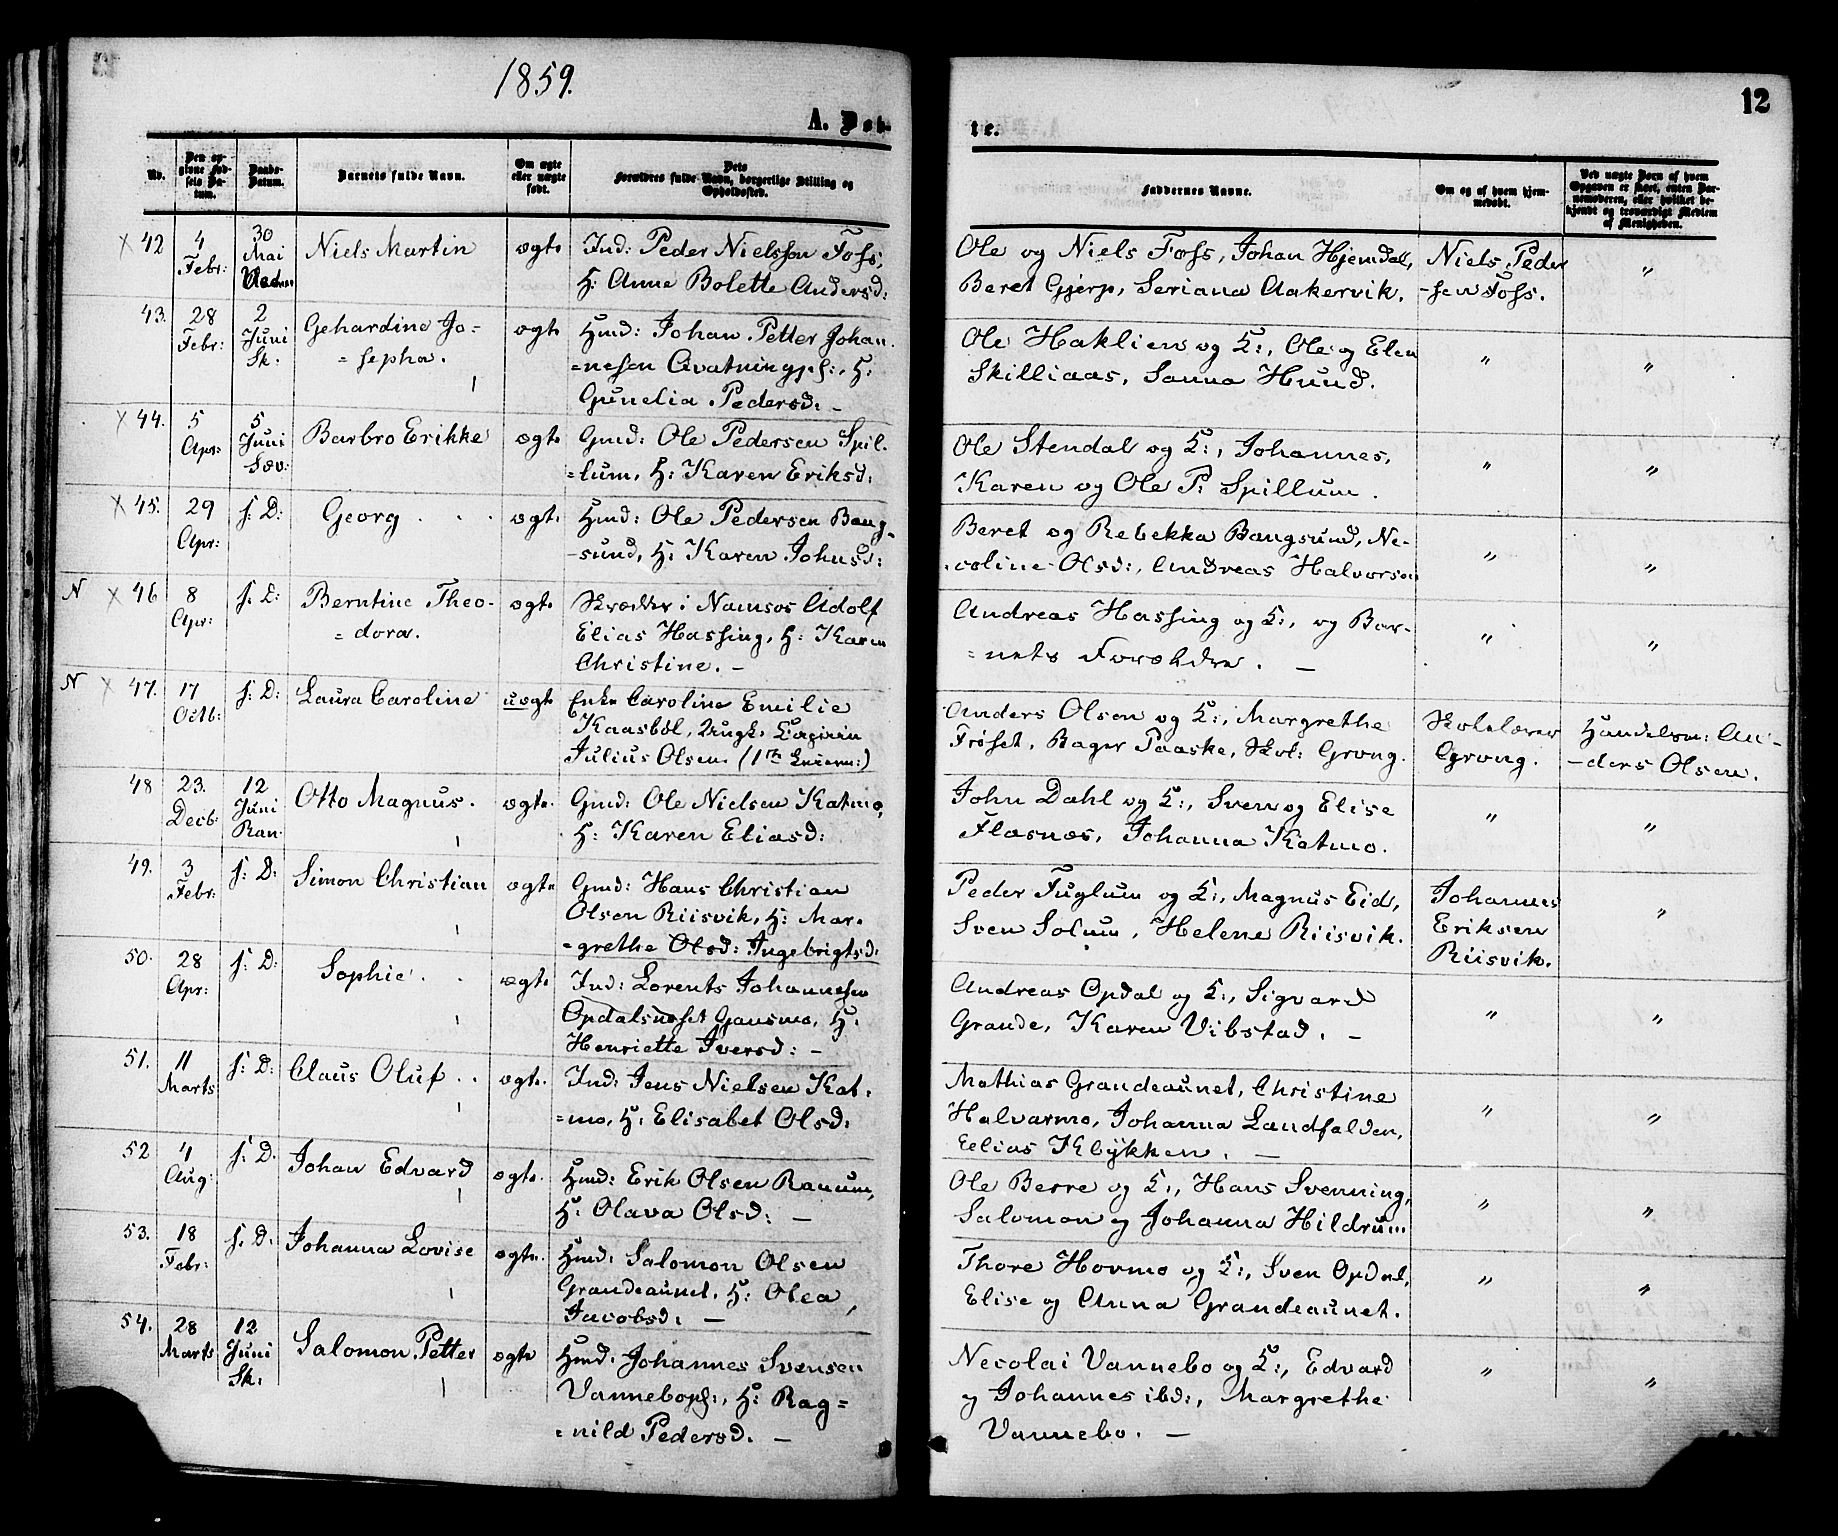 1859.
12
A. Døb-
te.
No.
Den op-
givne Fød-
sels Da-
tum.
Daabs-
Datum.
Barnets fulde Navn.
Om ægte
eller uægte
født.
Dets
Forældres fulde Navn, borgerlige Stilling og
Opholdssted.
Faddernes Navne.
Om og af hvem hjem-
medøbt.
Ved uægte Børn af hvem
Opgaven er skeet, enten Bar-
nemoderen, eller hvilket be-
kjendt og troværdigt Medlem
af Menigheden.
x 42 4 Febr: 30 Mai Niels Martin ægte Ind: Peder Nielssen Foss,
H: Anne Bolette Andersd:
Ole og Niels Foss, Johan Hjemdal,
Beret Gjerp, Seriana Aakervik.
Niels Peder
-sen Foss. "
43. 28 Febr: 2 Juni Sk. Gehardine Jo=
=sepha. ægte Hmd: Johan Petter Johan
=nesen Avatning H:
Gunelia Pedersd: –
Ole Haklien og K:, Ole og Elen
Skilliaas, Sanna Hund. " "
x 44. 5 Apr: 5 Juni Sæv: Barbro Erikke ægte Gmd: Ole Pedersen Spil-
=lum, H: Karen Eriksd:
Ole Stendal og K:, Johannes,
Karen og Ole P: Spillum. " "
x 45. 29 Apr: s: D: Georg . . . ægt. Hmd: Ole Pedersen Bang-
-sund, H: Karen Johnsd:
Beret og Rebekka Bangsund, Ne-
coline Olsd:, Andreas Halvorsen " "
N x 46 8 Apr: s: D: Berntine Theo-
=dora. ægte Skrædder i Namsos Adolf
Elias Hassing, H: Karen
Christine. –
Andreas Hassing og K:, og Bar-
=nets Forældre. – " "
N x 47. 17 Octb: s: D: Laura Caroline uægte Enke Caroline Emilie
Kaasbøl, Ungk:
Julius Olsen. (1ste)
Anders Olsen og K:, Margrethe
Frøset, Bager Paaske, Skol: Grong.
Skolelærer
Grong.
Handelsm: An-
-ders Olsen.
48 23. Decb: 12 Juni Ran. Otto Magnus. ægte. Gmd: Ole Nielsen Katmo,
H: Karen Eliasd:
John Dahl og K:, Sven og Elise
Flasnæs, Johanna Katmo. " "
49. 3 Febr: s: D: Simon Christian ægte Gmd: Hans Christian
Olsen Riisvik, H: Mar-
=grethe Olsd: Ingebrigtsd:
Peder Fuglum og K:, Magnus Eid,
Sven Solum, Helene Riisvik.
Johannes
Eriksen
Riisvik. "
50. 28 Apr: s: D: Sophie. . . ægte Ind: Lorents Johannesen
Opdalsneset Gansmo, H:
Henriette Iversd: –
Andreas Opdal og K:, Sigvard
Grande, Karen Vibstad. – " "
51. 11 Marts s: D: Claus Oluf . . ægte. Ind: Jens Nielsen Kat-
=mo, H: Elisabet Olsd:
Mathias Grandeaunet, Christine
Halvarmo, Johanna Landfalden,
Eelias Klykken. – " "
52 4 Aug: s: D. Johan Edvard ægte. Hmd: Erik Olsen Ranum,
H: Olava Olsd: –
Ole Berre og K:, Hans Svenning,
Salomon og Johanna Hildrum. " "
53. 18 Febr: s. D. Johanna Lovise ægte. Hmd: Salomon Olsen
Grandeaunet. H: Olea
Jacobsd: –
Thore Hovmo og K:, Sven Opdal,
Elise og Anna Grandeaunet. " "
54. 28 Marts 12 Juni Sk: Salomon Petter ægte Hmd: Johannes Svensen
Vannebo H: Rag=
=nild Pedersd. –
Necolai Vannebo og K:, Edvard
og Johannes ibd:, Margrethe
Vannebo. – " "